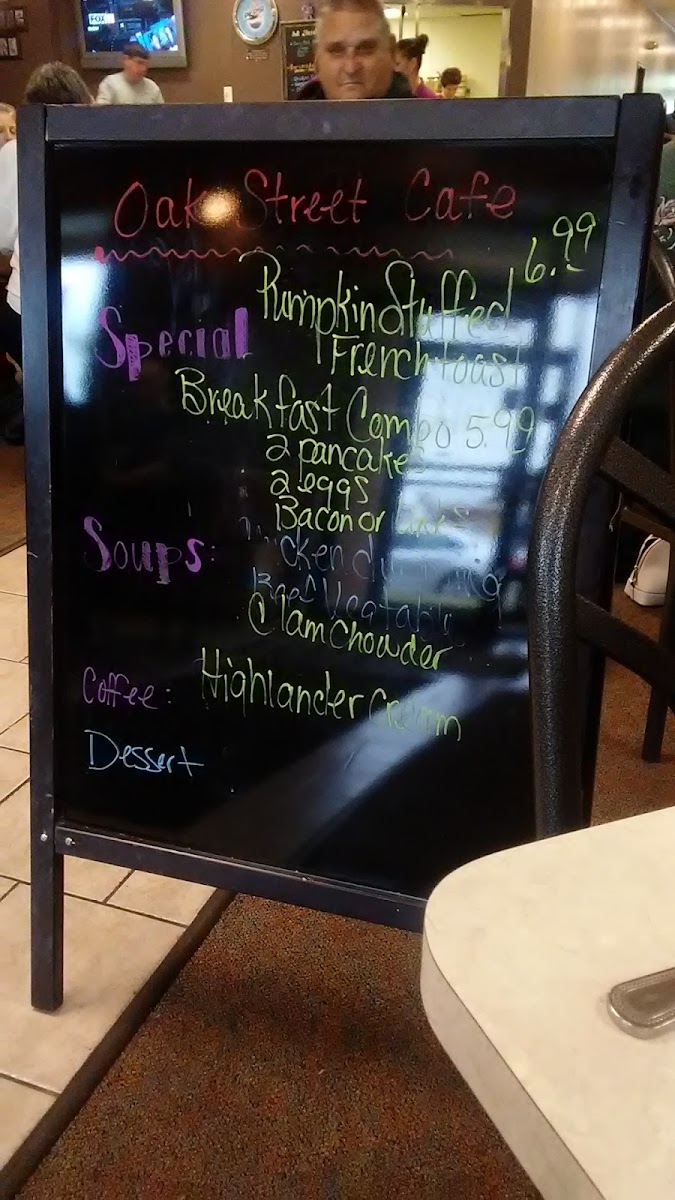 FOX
Oak Street Cafe
6.99
Special Pumpkin Stuffed
French toast
Breakfast Combo 5.99
2 pancakes
2 eggs
Bacon or
Soups:
Beef Vegtable
Clam Chowder
Coffee: Highlander Cream
Dessert